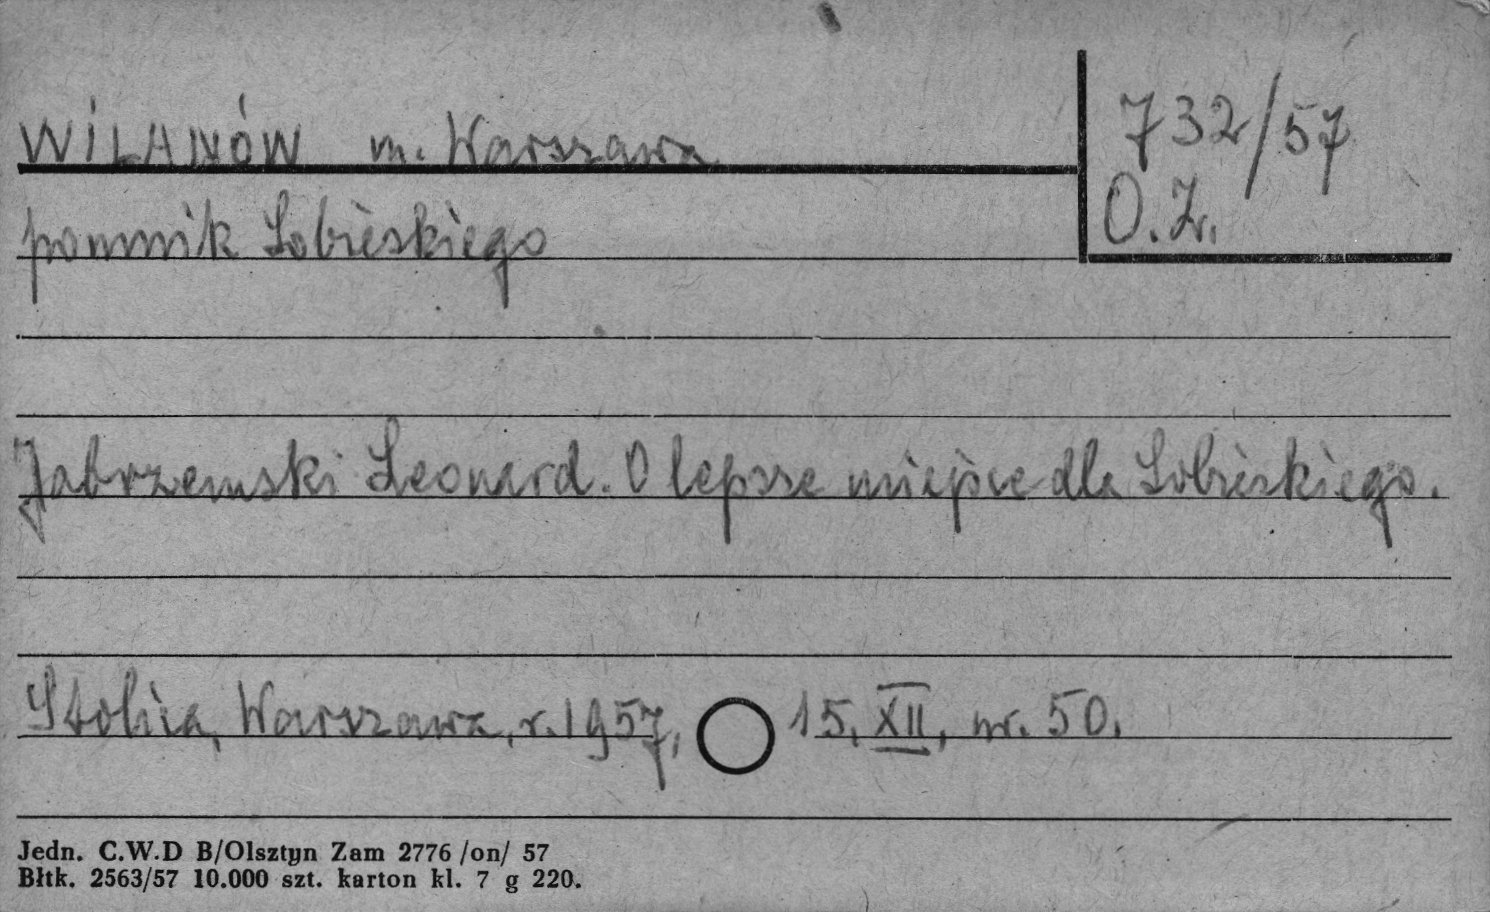 WILANÓW m. Warszawa
732/57
O.Z.
pomnik Sobieskiego
Jabrzemski Leonard. O lepsze miejsce dla Sobieskiego.
Stolica, Warszawa, r. 1957, 15. XII, nr. 50.
Jedn. C.W.D B/Olsztyn Zam 2776 /on/ 57
Błtk. 2563/57 10.000 szt. karton kl. 7 g 220.